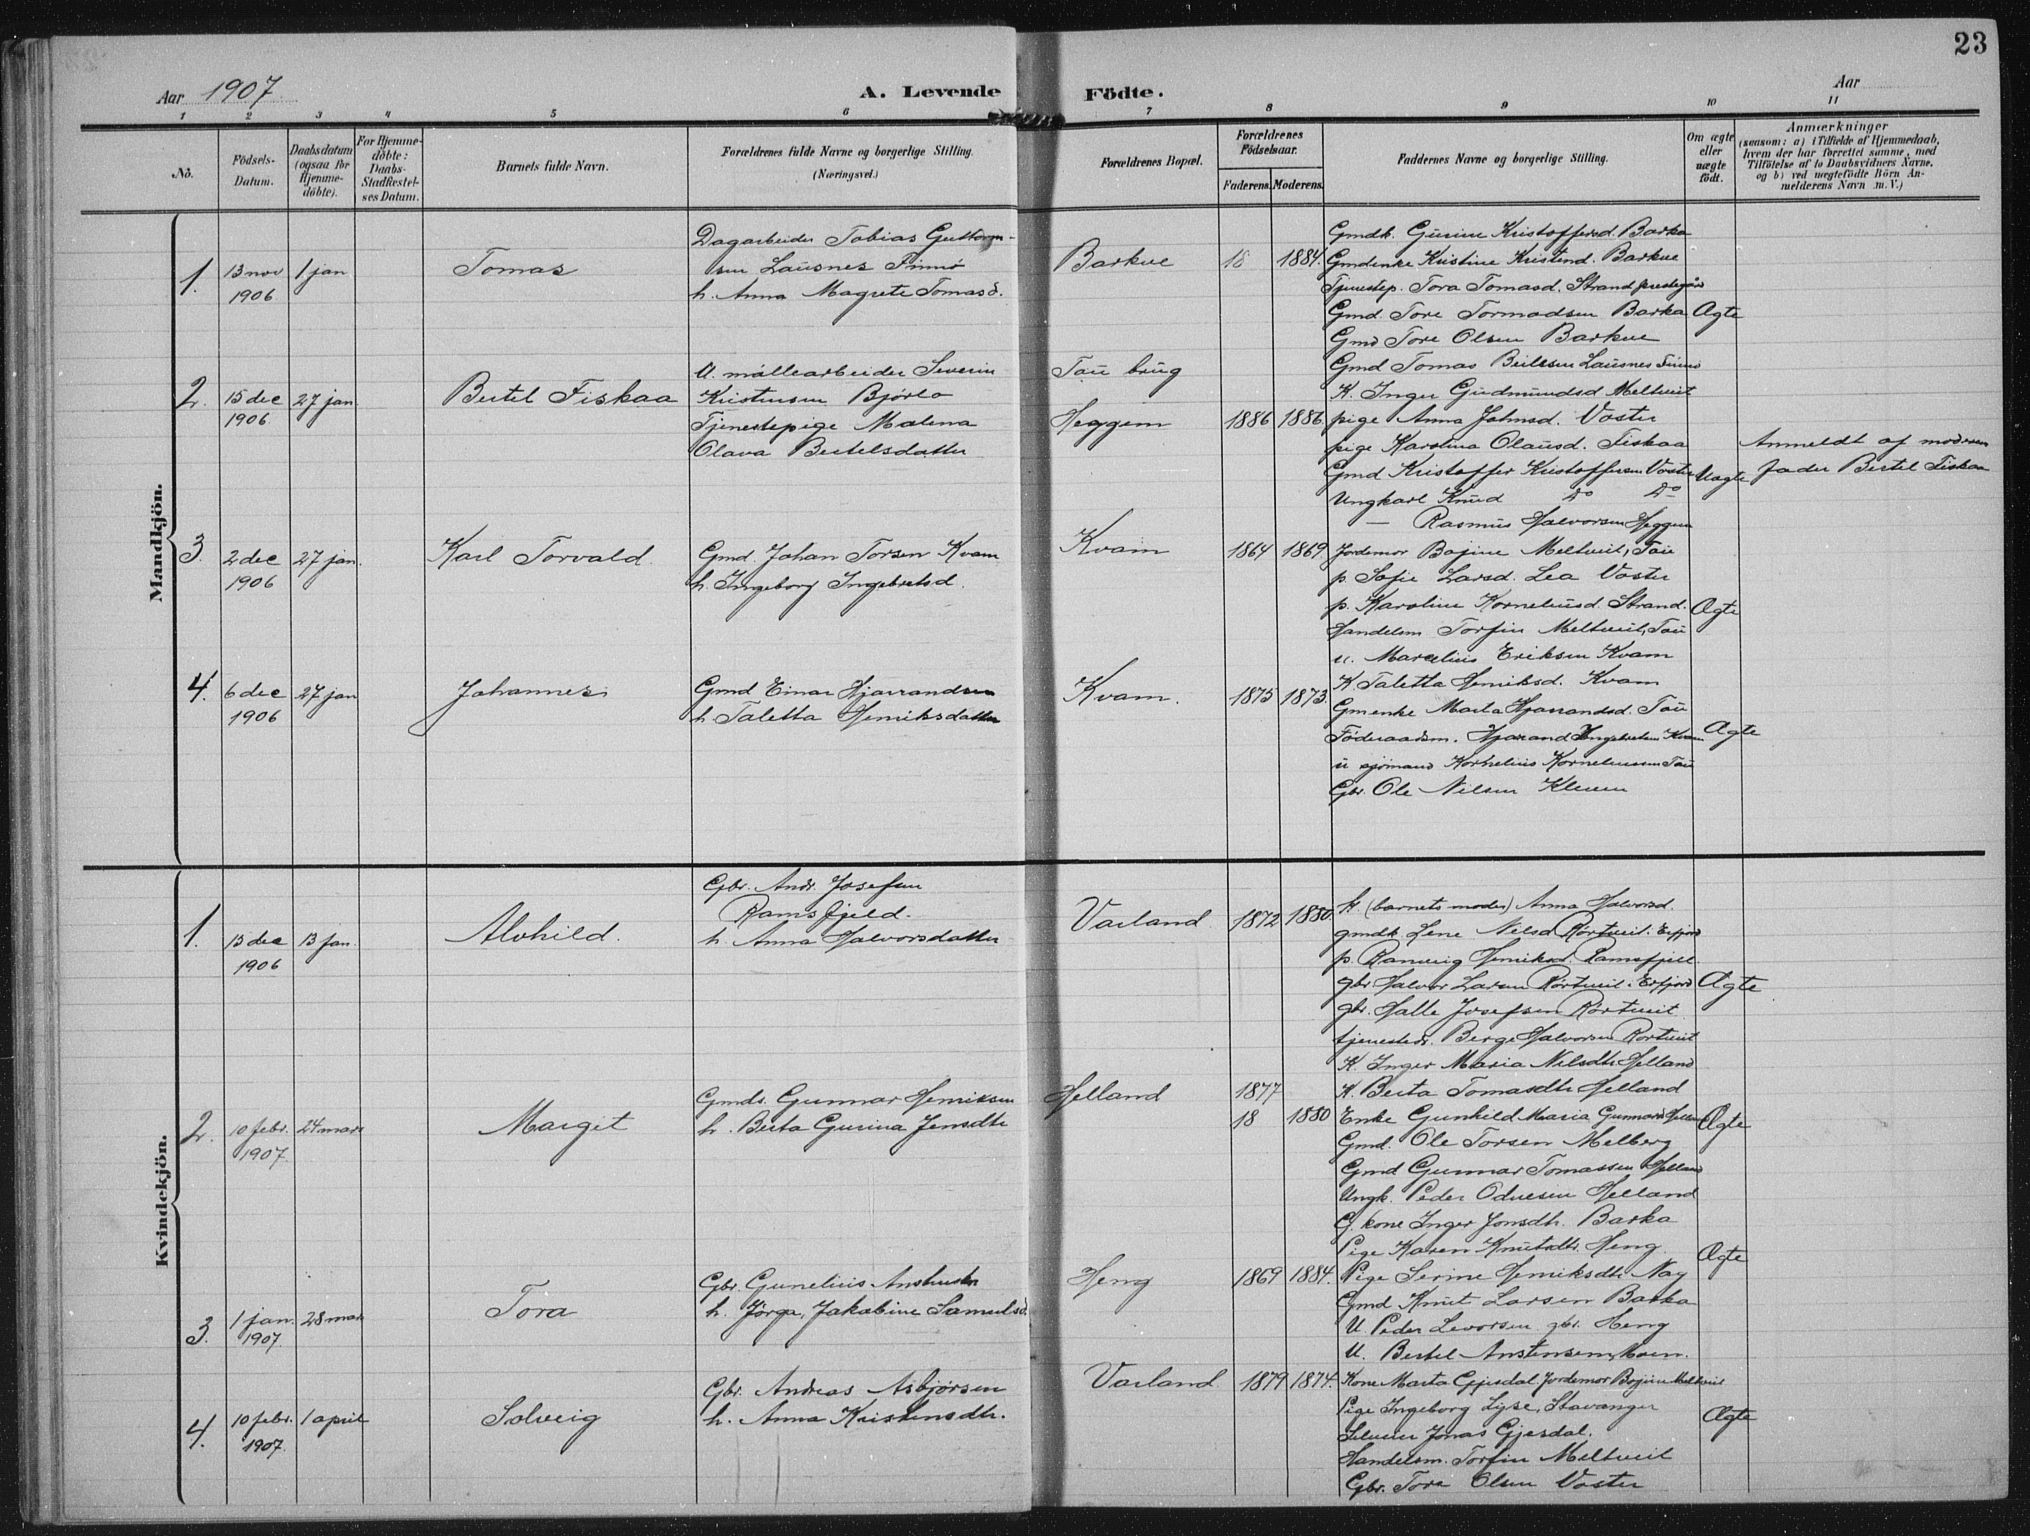 23
Aar 1907
A. Levende Födte.
Aar
1 2 3 4 5 6 7 8 9 10 11
No.
Födsels-
Datum.
Daabsdatum
(ogsaa for
Hjemme-
döbte).
For Hjemme-
döbte:
Daabs-
Stadfæstel-
ses Datum.
Barnets fulde Navn.
Forældrenes fulde Navne og borgerlige Stilling.
(Næringsvei.)
Forældrenes Bopæl.
Forældrenes
Födselsaar.
Faderens. Moderens.
Faddernes Navne og borgerlige Stilling.
Om ægte
eller
uægte
födt.
Anmærkninger
(saasom: a) i Tilfælde af Hjemmedaab,
hvem der har forrettet samme, med
Tilföielse af to Daabsvidners Navne,
og b) ved uægtefödte Börn An-
melderens Navn m. V.)
Mandkjön.
1.
13 nov
1906
1 jan
Tomas
Dagarbeider Tobias Guttorm-
sen Lausnes Finnø
h. Anna Magrete Tomasd.
Barkve
18
1884.
Gmdk. Gurine Kristoffersd. Barka
Gmdenke Kristine Kristend. Barkve
Tjenestep. Tora Tomasd. Strand prestegård
Gmd Tore Tormodsen Barka
Gmd Tore Olsen Barkve
Gmd Tomas Lausnes Finnø
Ægte
2.
15 dec
1906
27 jan
Bertel Fiskaa
U. møllearbeider Severin
Kristensen Bjørlo
Tjenestepige Malena
Olava Bertelsdatter
Tau brug
Heggem
1886
1886
K. Inger Gudmundsd Meltveit
pige Anna Johnsd. Voster
pige Karolina Olausd. Fiskaa
Gmd Kristoffer Kristoffersen Voster
Ungkarl Knud Do Do
— Rasmus Halvorsen Heggem
Uægte
Anmeldt af moderens
fader Bertel Fiskaa
3.
2 dec
1906
27 jan.
Karl Torvald.
Gmd. Johan Torsen Kvam
h. Ingeborg Ingebretsd.
Kvam
1864
1869.
Jordemor Bojine Meltveit, Tau
p. Sofie Larsd. Lea Voster
p. Karoline Korneliusd. Strand.
Handelsm. Torfin Meltveit, Tau
u. Marcelius Eriksen Kvam
Ægte
4.
6 dec
1906
27 jan
Johannes
Gmd Einar Hjarrandsen
h. Taletta Henriksdatter
Kvam.
1875
1873.
K. Taletta Henriksd. Kvam
Gmenke Marta Hjarrandsd. Tau
Föderaadsm. Hjarand Ingebretsen Kvam
u sjømand Kornelius Korneliussen Tau
Gbr. Ole Nilsen
Ægte
Kvindekjön.
1.
13 jan.
1906
Alvhild.
Gbr. Andr. Josefsen
Ramsfjeld.
h. Anna Halvorsdatter
Varland
1872
1880.
k. (barnets moder) Anna Halvorsd.
gmdk. Lene Nilsd Rørtveit. Erfjord
p. Henriksd. Ramsfjell.
gbr Halvor Larsen Rørtveit. Erfjord
gbr. Halle Josefsen Rørtveit
tjenestedr. Berge Halvorsen Rørtveit
Ægte
2.
10 febr.
1907.
24 mars
Margit
Gmds. Gunnar Henriksen
h. Berta Gurina Jensdtr
Helland
1877
18
1880
K. Inger Maria Nilsdtr Helland
K. Berta Tomasdtr Helland
Enke Gunhild Maria Gunnarsd
Gmd. Ole Torsen Melberg
Gmd Gunnar Tomassen Helland
Ungk. Peder Odnesen Helland
Ægte
3.
1 jan.
1907.
28 mars
Tora
Gbr. Gunelius
h. Jørga Jakobine Samuelsd.
Heng
1869
1884.
G. kone Inger Jonsdtr. Barka
Pige Karen Knutsdtr. Heng
Pige Serine Henriksdtr Nag
Gmd Knut Larsen Barka
U. Peder Levorsen gbr. Heng
U. Bertel Anstensen, Moen.
Ægte
4.
10 febr.
1907.
1 april
Solveig
Gbr. Andreas Asbjørsen
h. Anna Kristensdtr.
Varland.
1879
1874.
Kone Marta Gjesdal. Jordemor Bojine Meltveit
Pige Ingeborg Lyse, Stavanger
Jonas Gjesdal.
Handelsm. Torfin Meltveit
Gbr. Tore Olsen Voster
Ægte